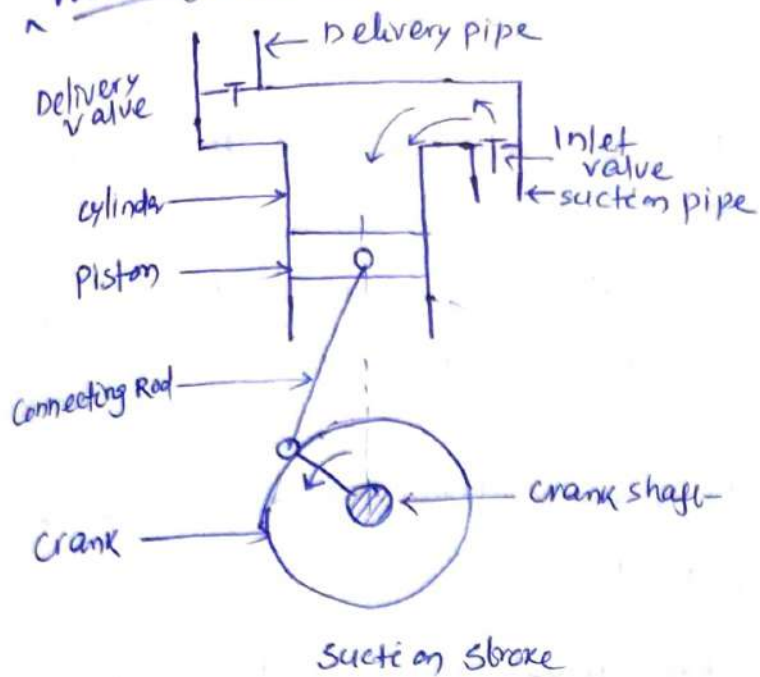 Delivery pipe
Delivery
valve
Inlet
valve
suction pipe
cylinder
Piston
Connecting Rod
crank shaft
Crank
Suction Stroke